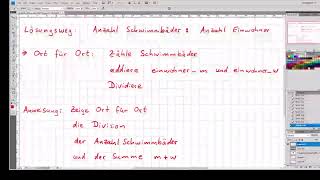 Lösungsweg: Anzahl Schwimmbäder : Anzahl Einwohner
→ Ort für Ort: Zähle Schwimmbäder
addiere einwohner_m und einwohner_w
Dividiere
Anweisung: Zeige Ort für Ort
die Division
der Anzahl Schwimmbäder
und der Summe m+w